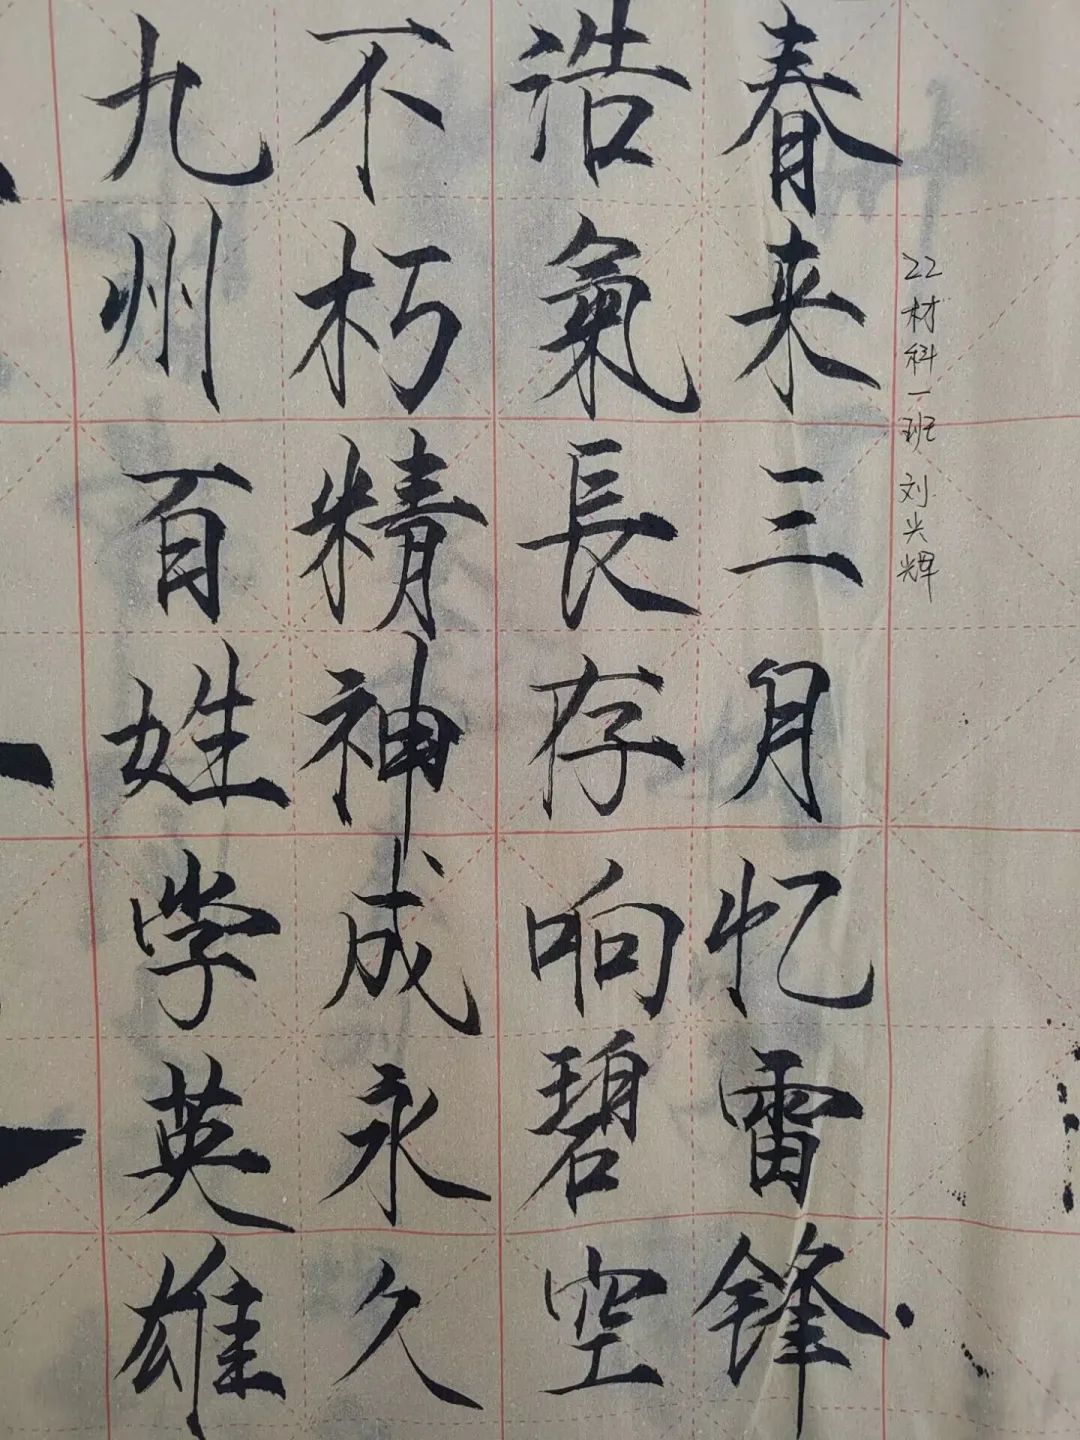 22材科一班 刘兴辉
春来三月忆雷锋
浩氣長存响碧空
不朽精神成永久
九州百姓学英雄